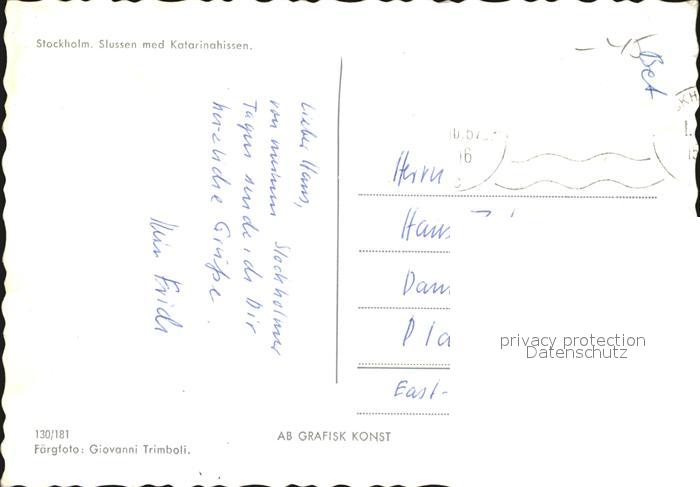 Stockholm. Slussen med Katarinahissen.
Lieber Hans,
von meinen Stockholmer
Tagen sende ich Dir
herzliche Grüße.
Herrn
Hans
Dam
Pla
East-
privacy protection
Datenschutz
130/181
AB GRAFISK KONST
Färgfoto: Giovanni Trimboli.